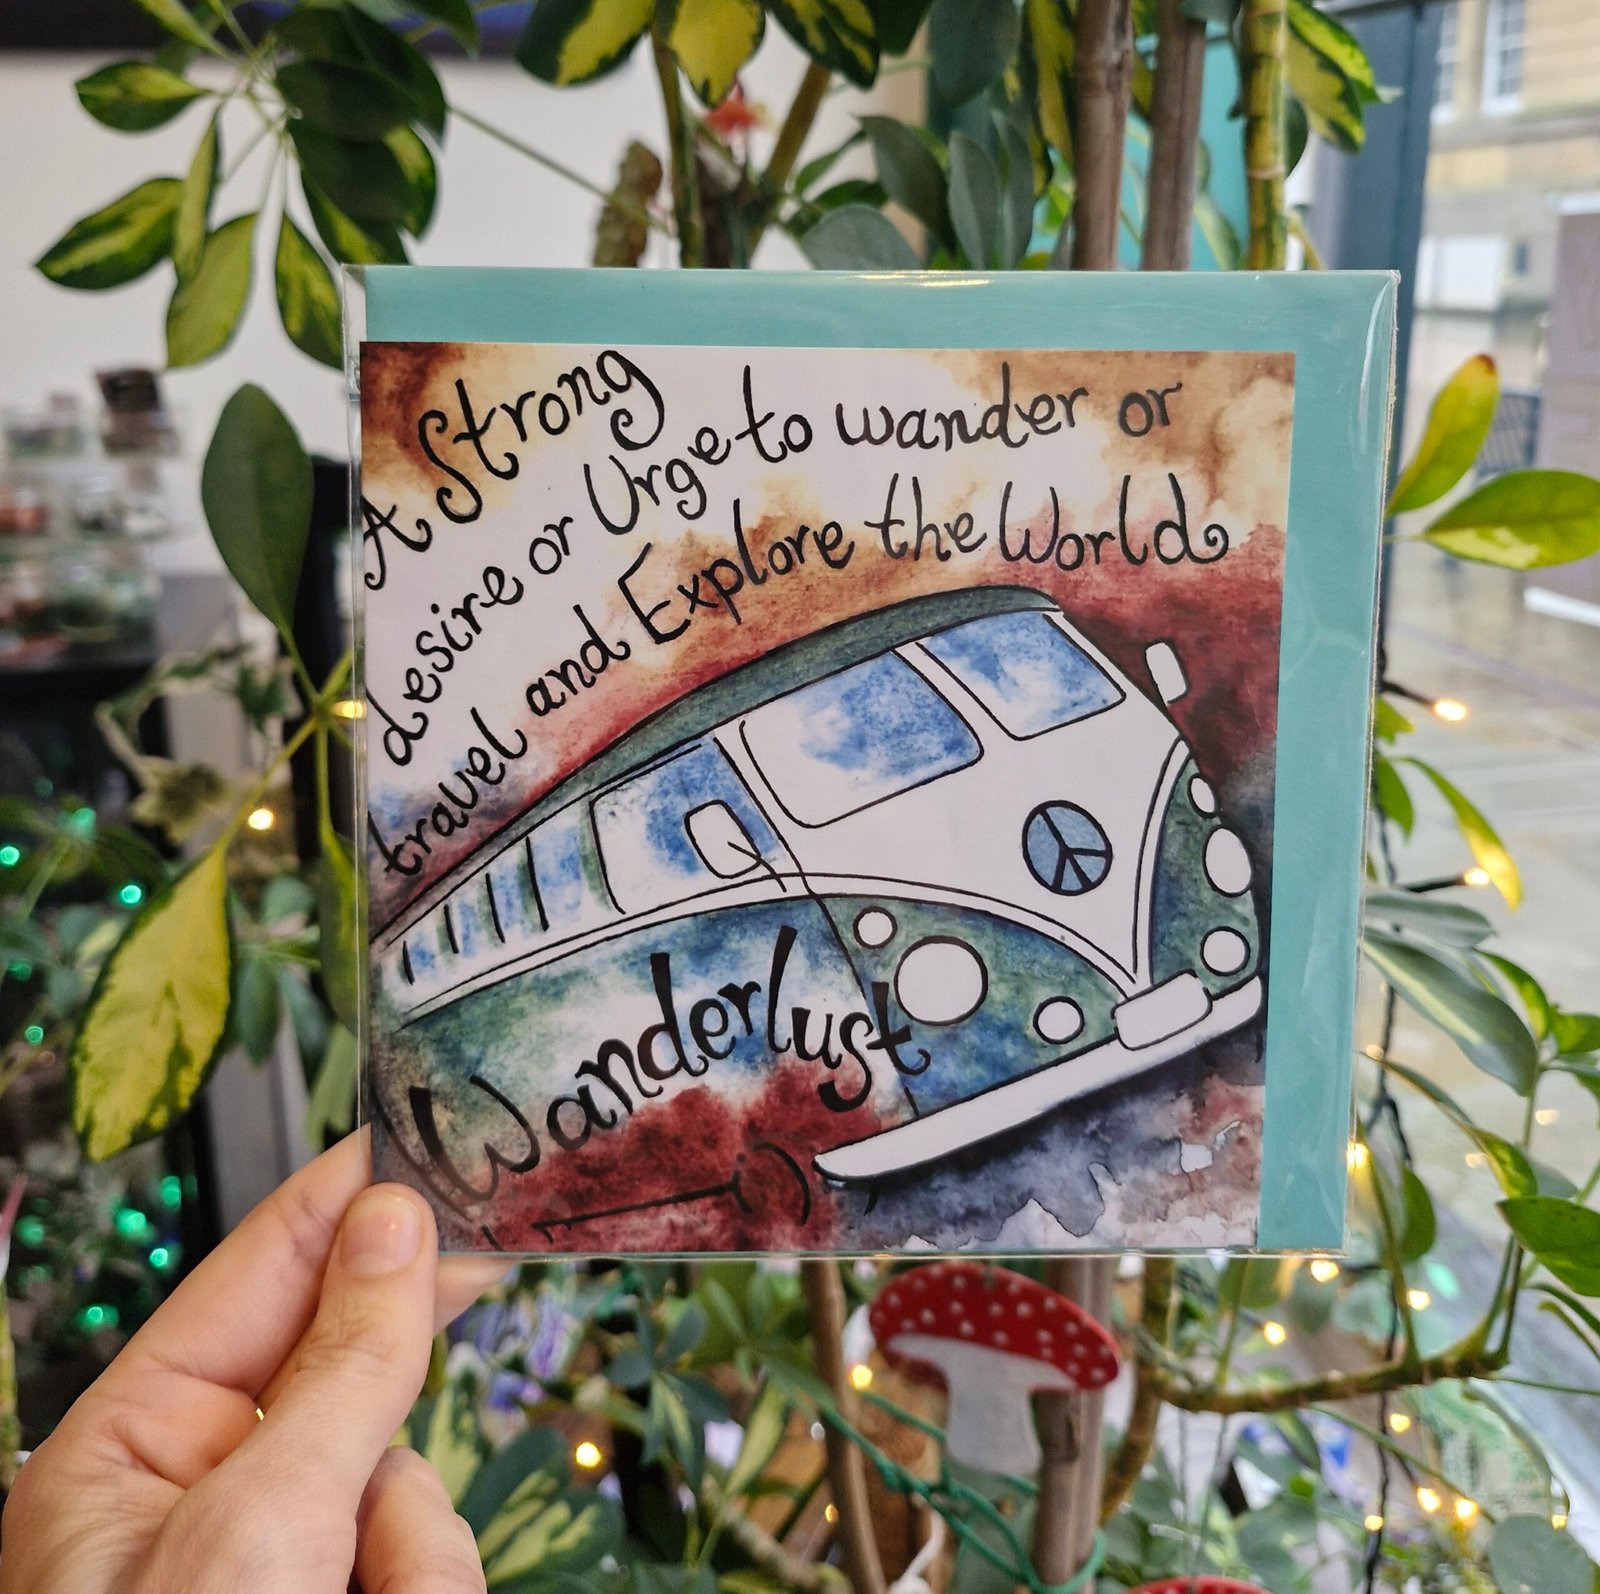 A Strong
desire or Urge to wander or
travel and Explore the World
Wanderlust